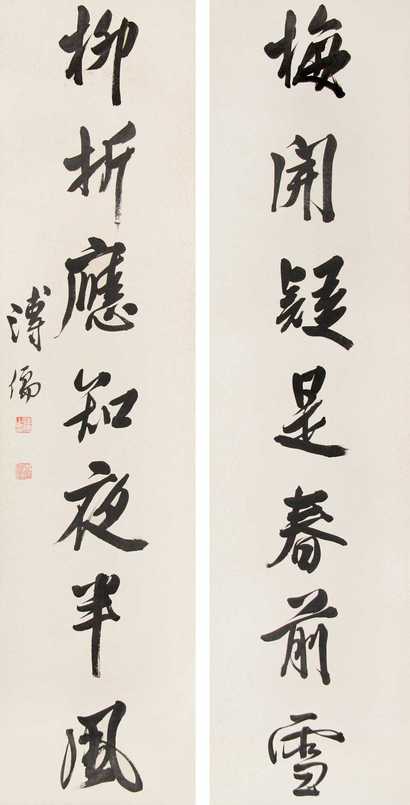 梅開疑是春前雪
柳折應知夜半風
溥儒